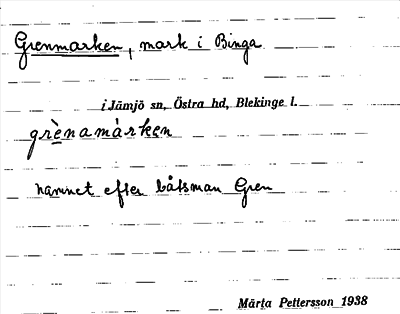 Grenmarken, mark i Binga
i Jämjö sn, Östra hd, Blekinge l.
grè̱namàrken
namnet efter båtsman Gren
Märta Pettersson 1938